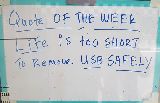 Quote OF THE WEEK
Life is too SHORT
To Remove USB SAFELY